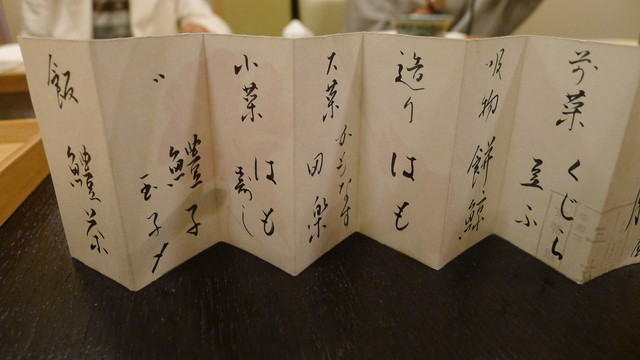 前菜 くじら
豆ふ
吸物 餅鯨
造り はも
大菜 かもなす
田楽
小菜 はも
寿し
〃 鱧子
玉子〆
飯 鱧茶